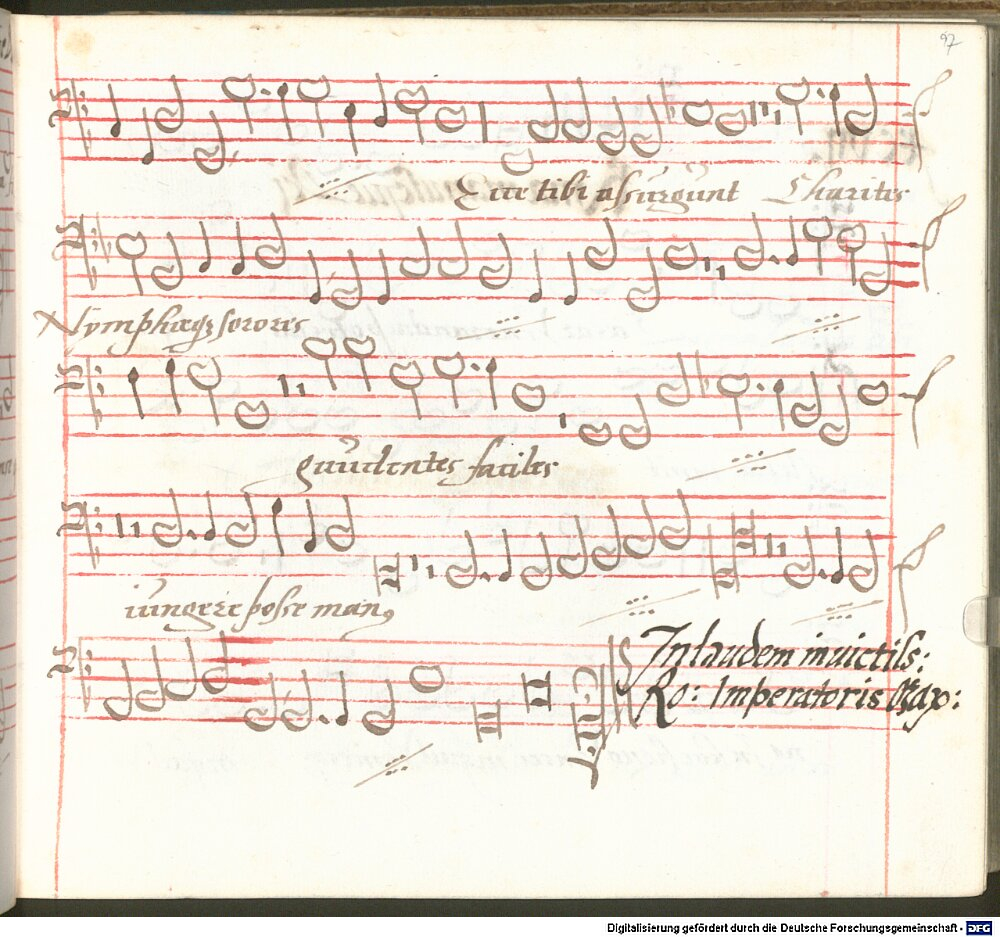 97
Ecce tibi assurgunt Charites
Nymphæqz sorores
gaudentes faciles
iungere posse man9
In laudem inuictiss:
Ro: Imperatoris Max:
Digitalisierung gefördert durch die Deutsche Forschungsgemeinschaft - DFG